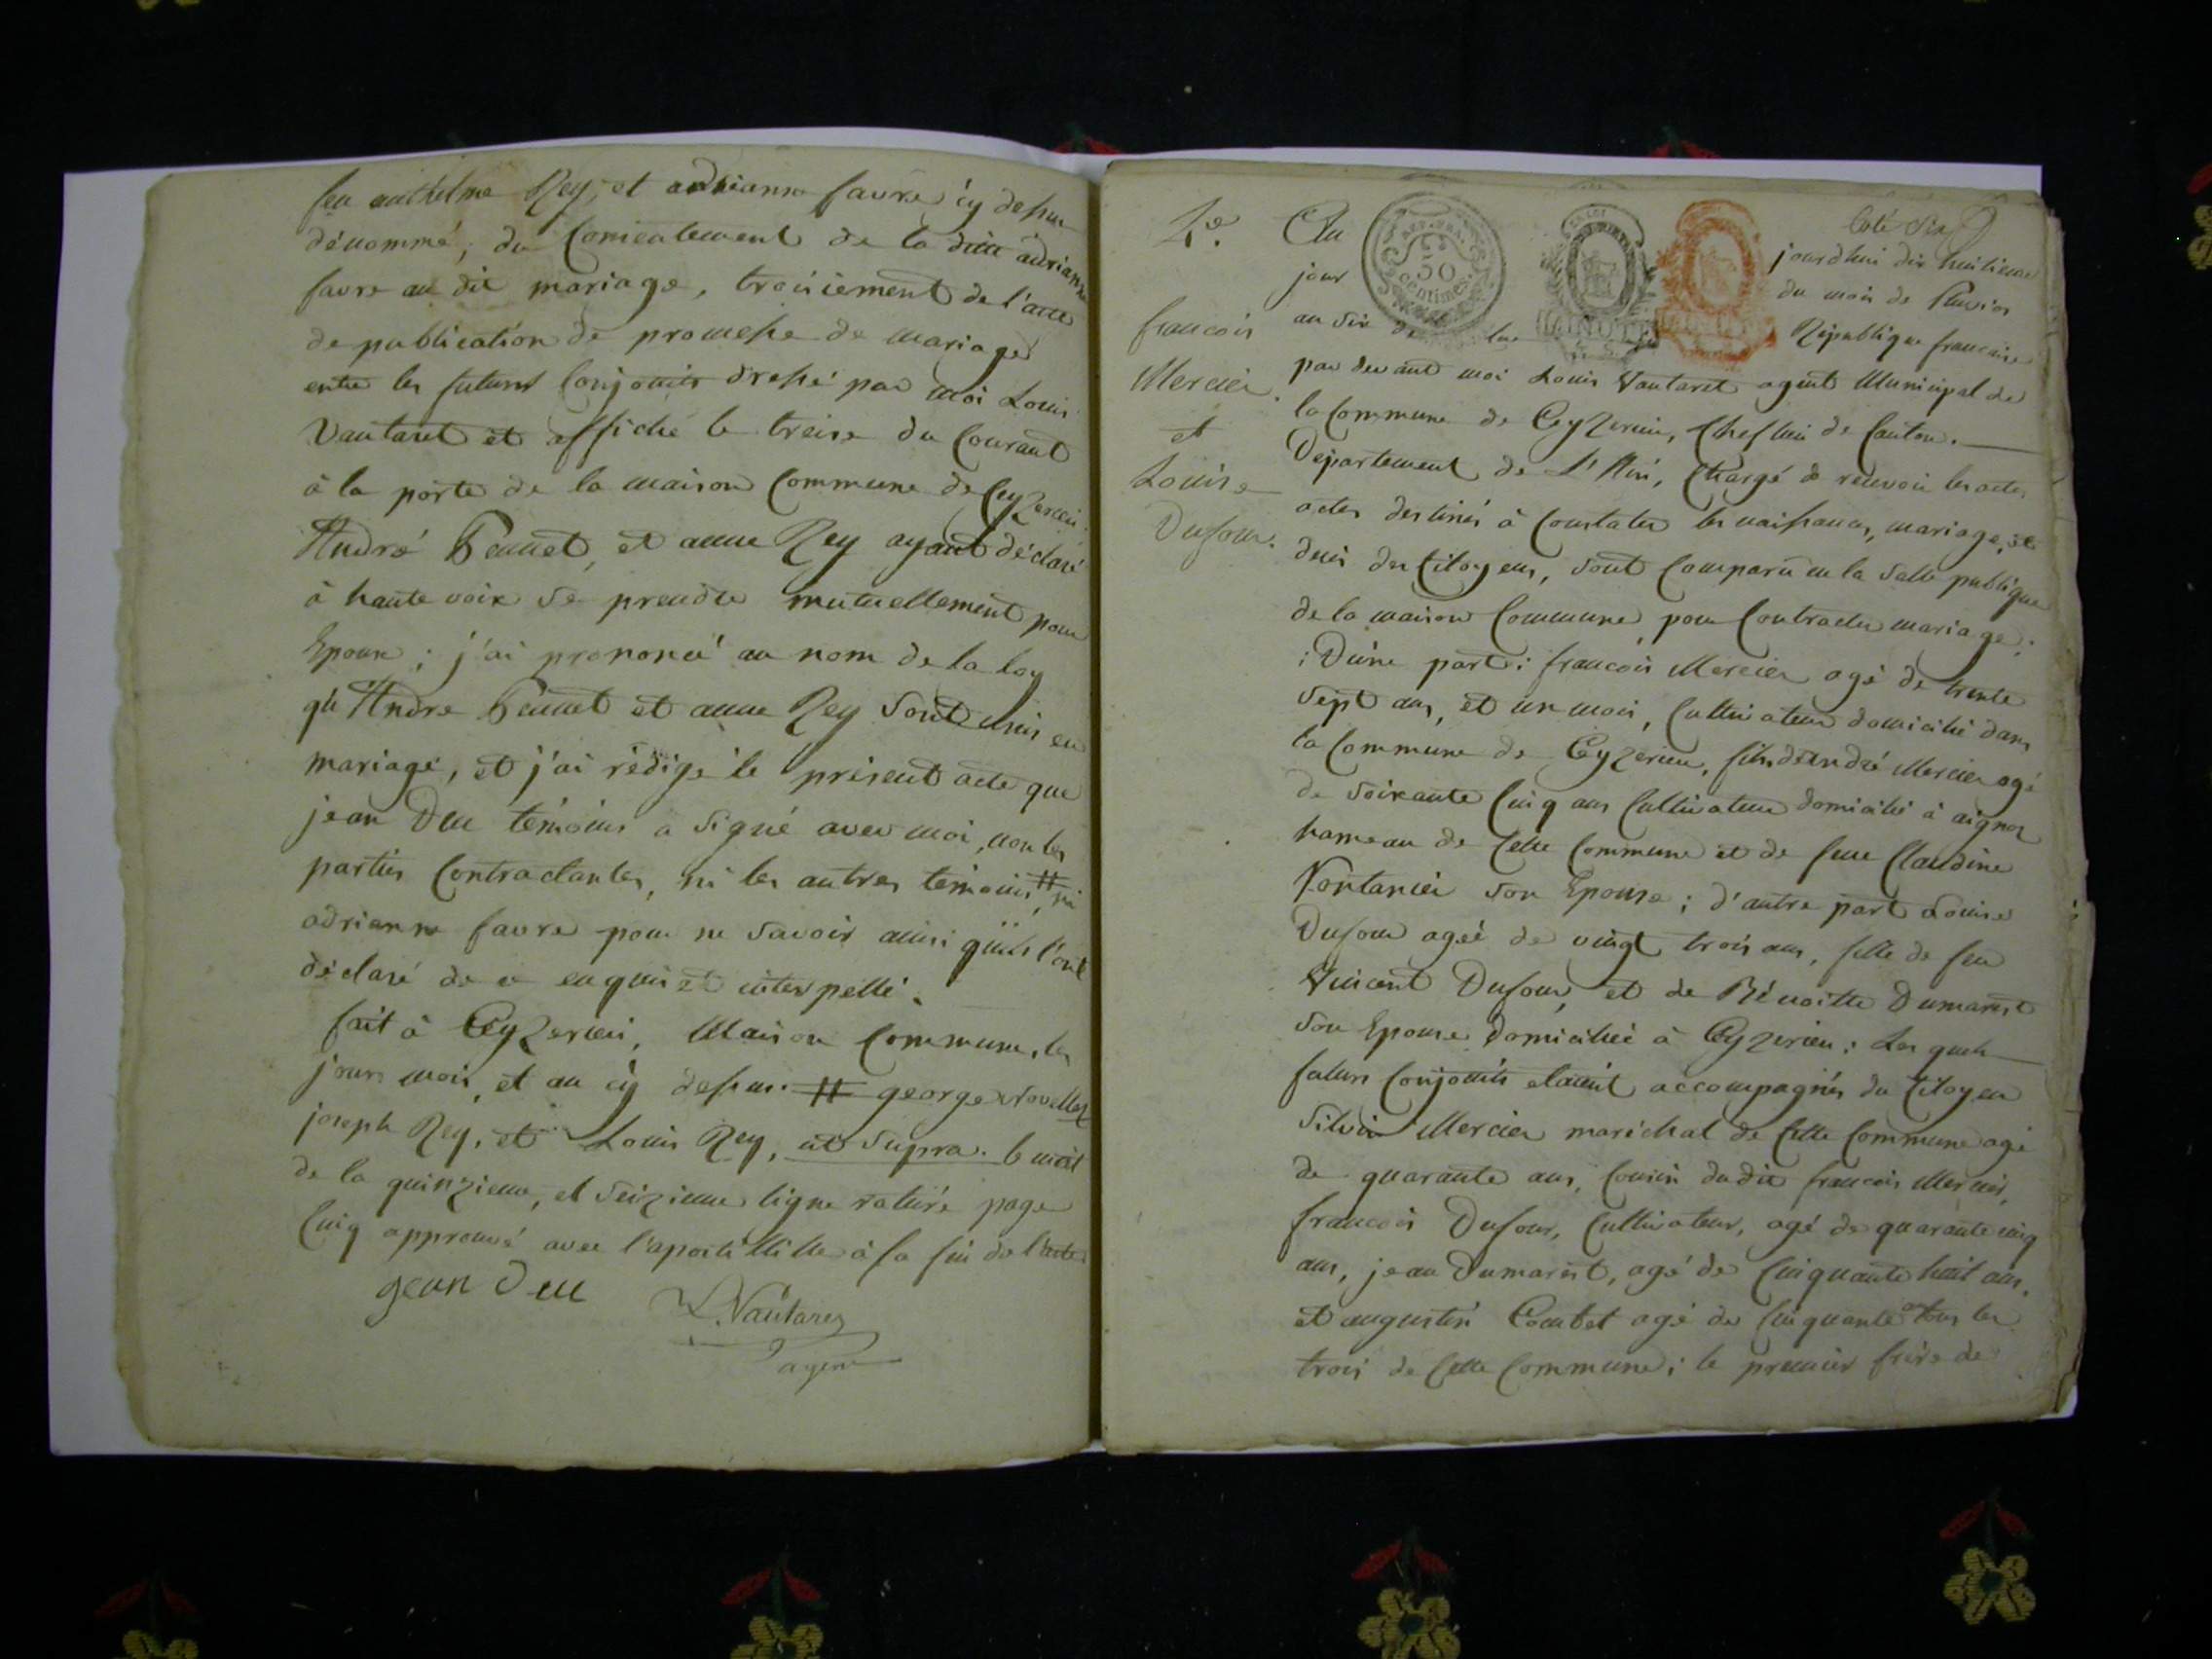 feu anthelme Rey, et adrianne favre cy dessus
dénommé; du Consentement de la ditte adrianne
favre au dit mariage, troisiement de l'acte
de publication de promesse de mariage
entre les futurs Conjouits dressé par moi Louis
Vautaret et affiché le treise du Courant
à la porte de la maison Commune de Ceyzerieu
André Bennet, et anne Rey ayant déclaré
à haute voix se prendre mutuellement pour
Epoux; j'ai prononcé au nom de la loy
qu'André Bennet et anne Rey sont unis en
mariage, et j'ai rédigé le présent acte que
jean Duc témoins a signé avec moi, non les
parties Contractantes, ni les autres témoins # ni
adrianne favre pour ne savoir ainsi qu'ils l'ont
déclaré de ce enquis et interpellé.
fait à Ceyzerieu, Maison Commune, les
jours mois, et an cy dessus. # george
joseph Rey, et Louis Rey, ut supra. le mot
de la quinzieme, et seizieme ligne raturé page
Cinq approuvé avec l'apostille à la fin de l'acte
jean Duc
L. Vautaret
agent
Coté Six
4e.
françois
Mercier
et
Louise
Dufour.
REP. FRA.
50
Centimes
MINUTE
Au jourdhui dix huitieme
jour du mois de Pluvios
an six de la République française
par devant moi Louis Vautaret agent Municipal de
la Commune de Ceyzerieu, Chef lieu de Canton.
Département de L'Ain, Chargé de recevoir les actes
actes destinés à Constater les naissances, mariage, et
décès des Citoyens, sont Comparu en la salle publique
de la maison Commune, pour Contracter mariage;
; D'une part: françois Mercier agé de trente
sept ans, et un mois, Cultivateur domicilié dans
la Commune de Ceyzerieu, fils d'André Mercier agé
de soixante Cinq ans Cultivateur domicilié à aignoz
hameau de Cette Commune et de feue Claudine
Vontanier son Epouse; d'autre part Louise
Dufour agée de vingt trois ans, fille de feu
Vincent Dufour, et de Bénoitte Dumarest
son Epouse domiciliée à Ceyzerieu: Les quels
futurs Conjouits etaient accompagnés du Citoyen
Silvin Mercier maréchal de Cette Commune agé
de quarante ans, Cousin dudit françois Mercier,
françois Dufour, Cultivateur, agé de quarante cinq
ans, jean Dumarest, agé de Cinquante huit ans,
et augustin Combet agé de Cinquante ans tous les
trois de Cette Commune; le premier frère de